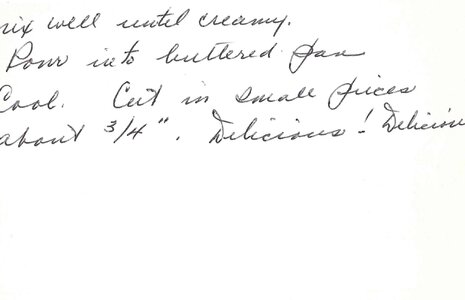 mix well until creamy.
Pour into buttered pan
Cool. Cut in small pieces
about 3/4". Delicious! Delicious